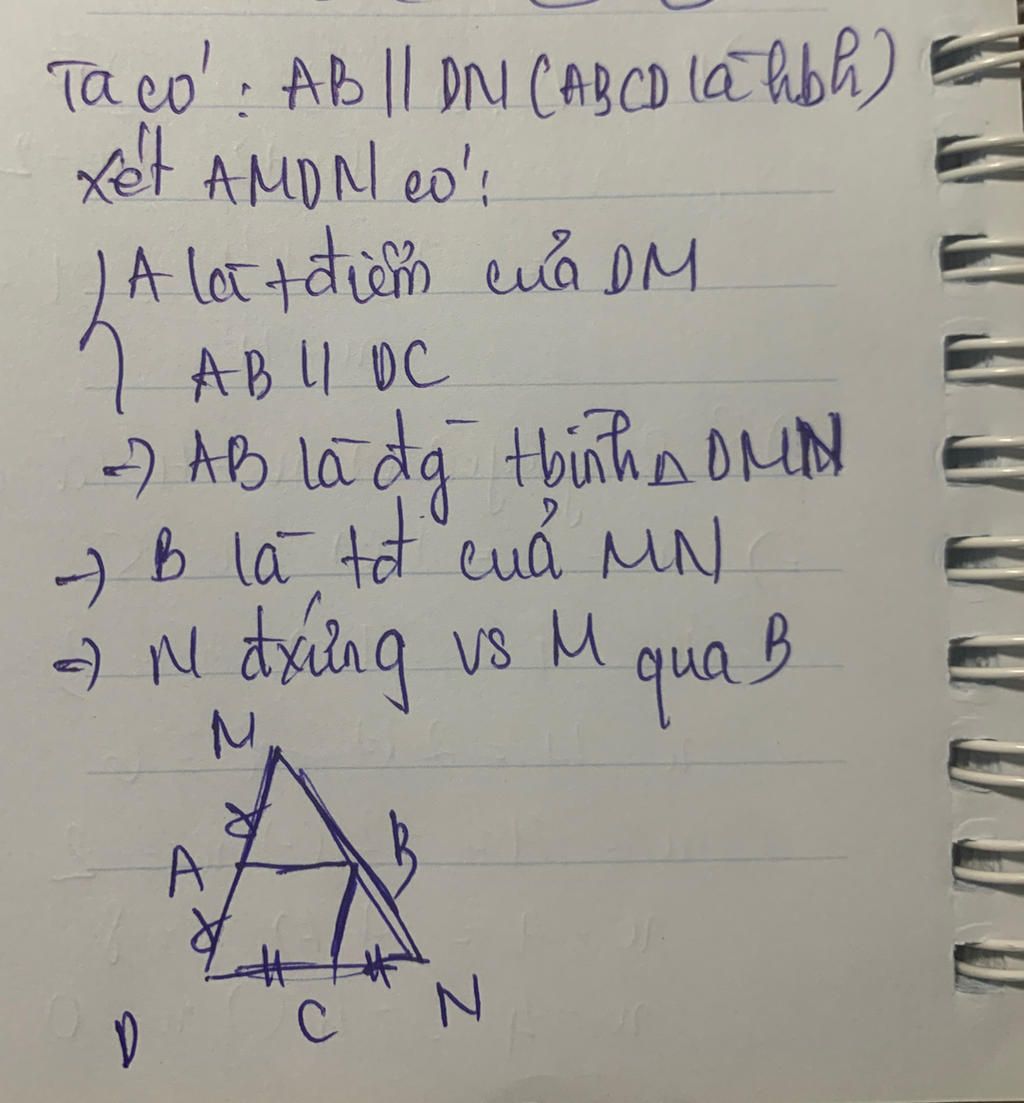 Ta có: AB // DN (ABCD là hbh)
Xét ΔMDN có:
A là tđiểm của DM
AB // DC
→ AB là đg tbình Δ DMN
→ B là tđ của MN
→ N đxứng vs M qua B
M
A B
C N
D